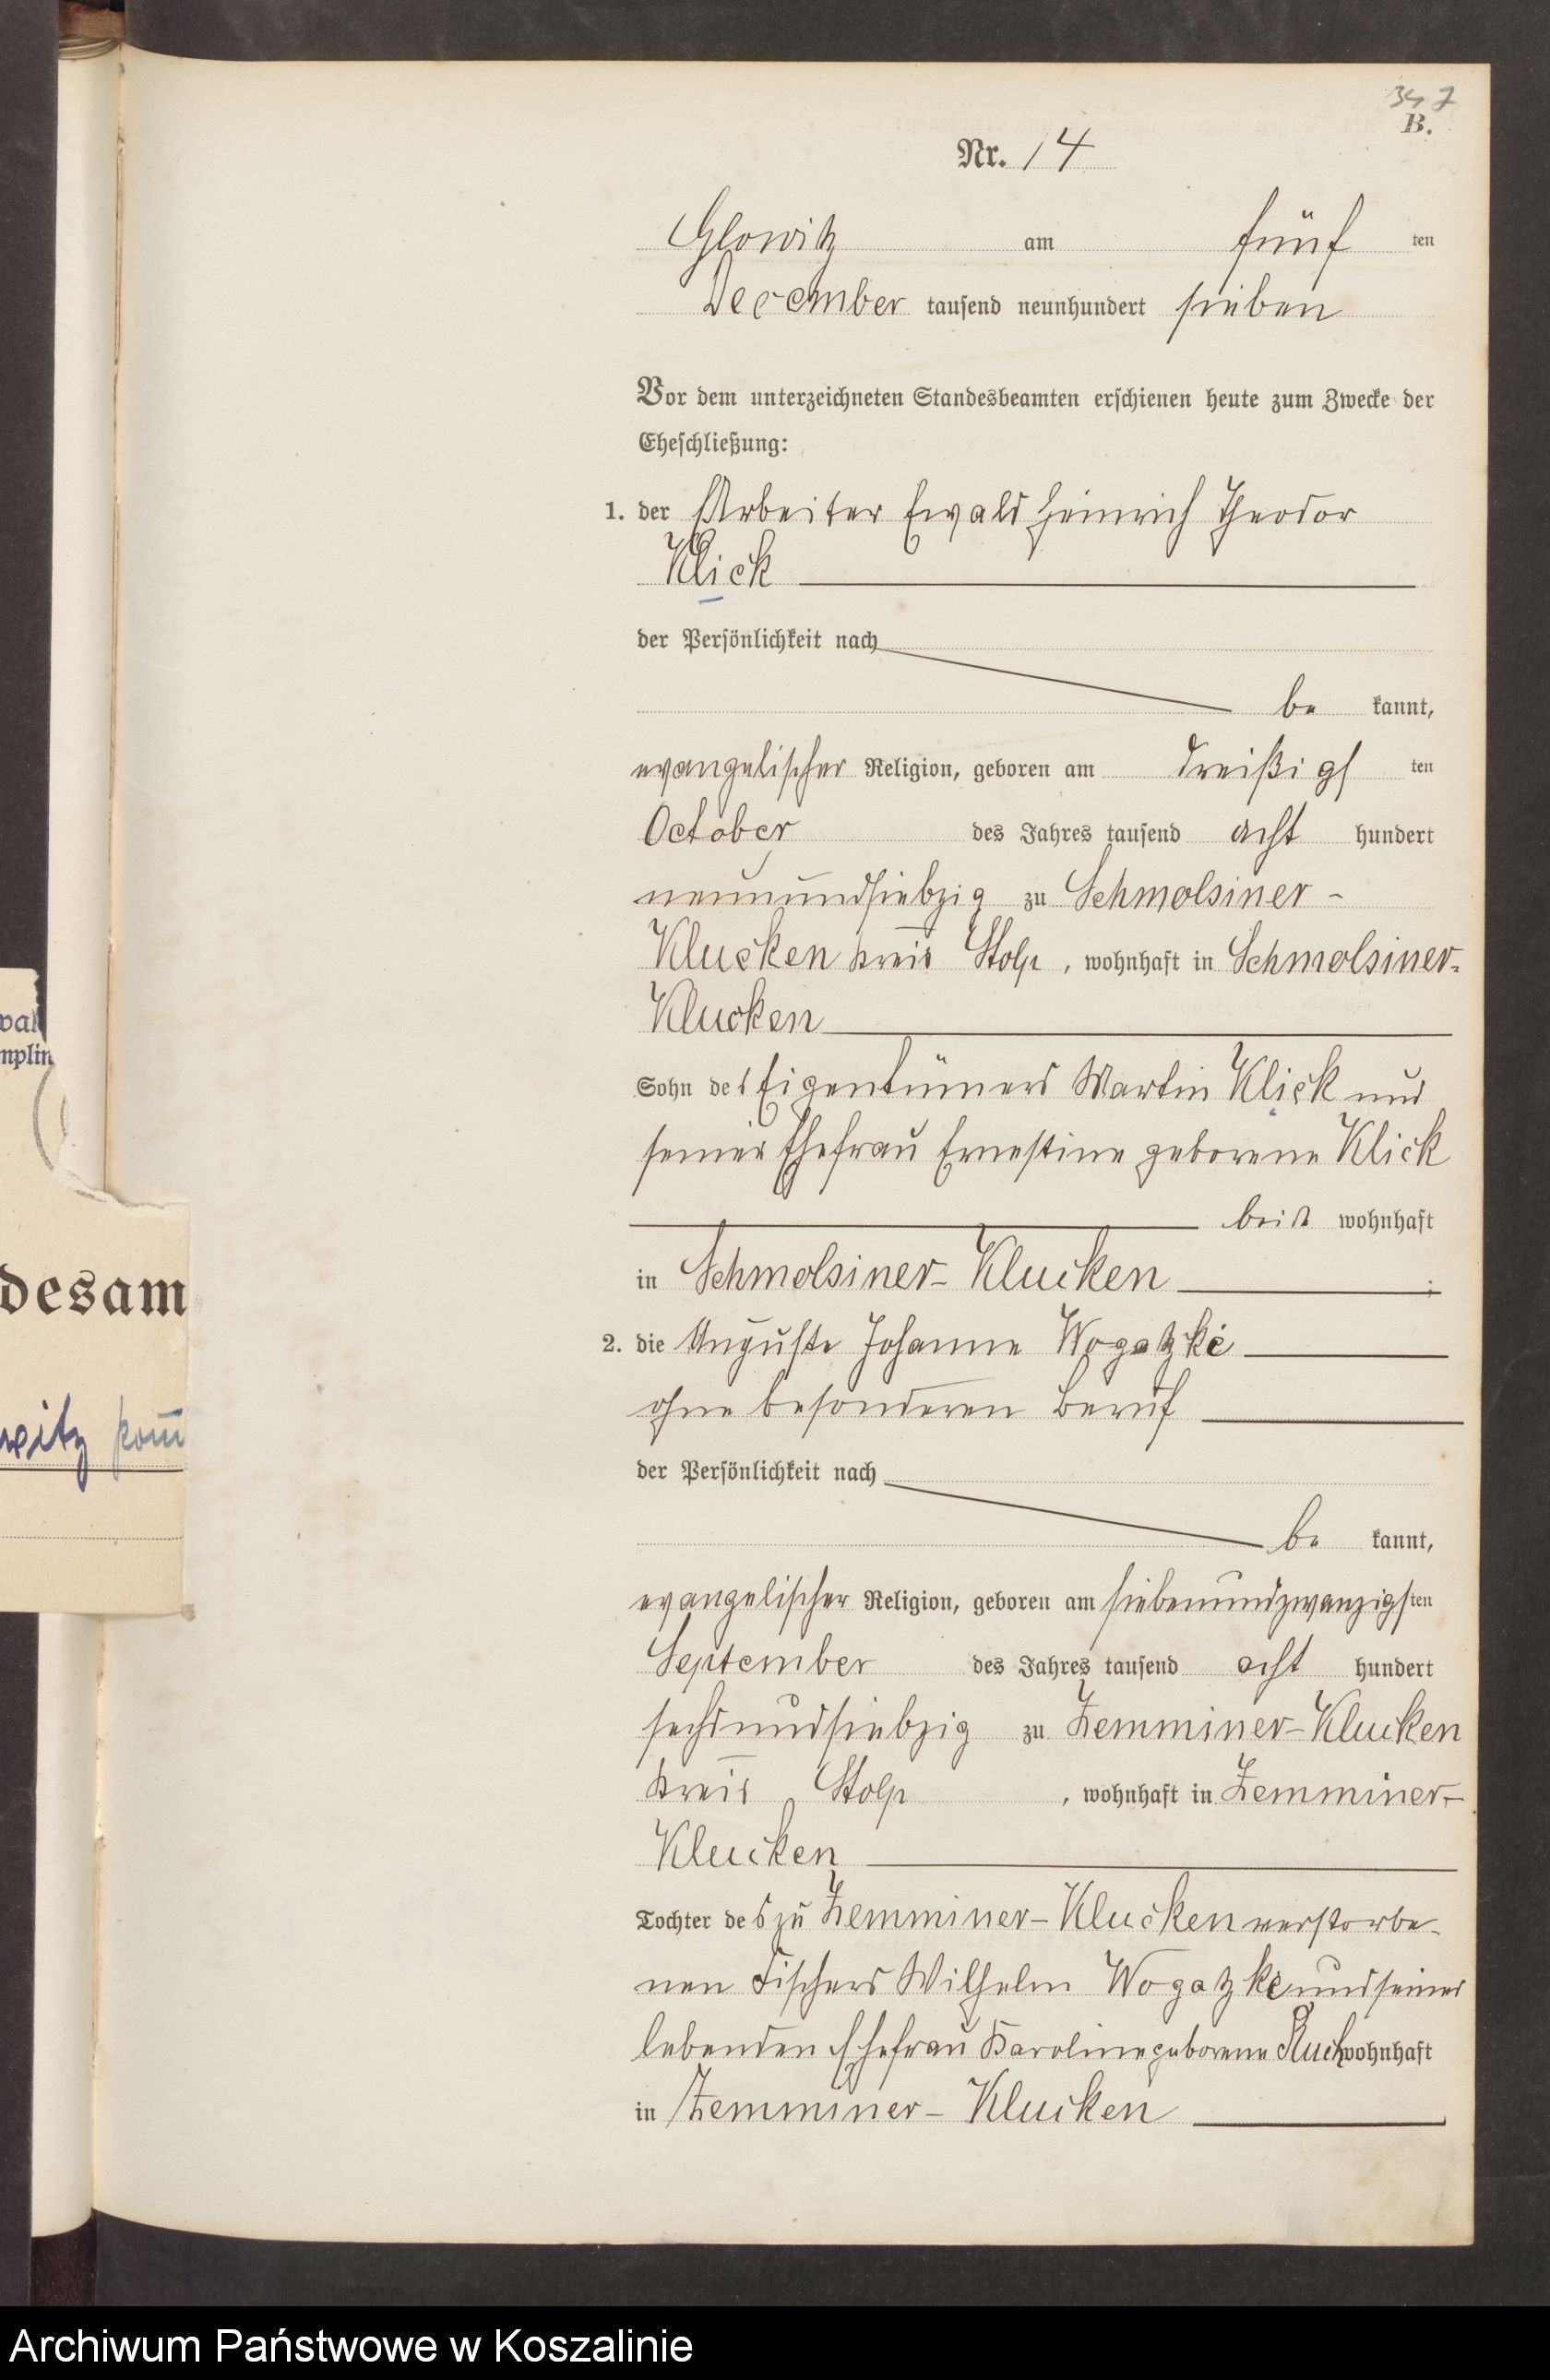 347
B.
Nr. 14
Glowitz am fünf ten
December tausend neunhundert sieben
Vor dem unterzeichneten Standesbeamten erschienen heute zum Zwecke der
Eheschließung:
1. der Arbeiter Ewald Heinrich Theodor
Klick
der Persönlichkeit nach
be kannt,
evangelischer Religion, geboren am dreißigs ten
October des Jahres tausend acht hundert
neunundsiebzig zu Schmolsiner-
Klucken Kreis Stolp, wohnhaft in Schmolsiner-
Klucken
Sohn des Eigentümers Martin Klick und
seiner Ehefrau Ernestine geborene Klick
beide wohnhaft
in Schmolsiner-Klucken ;
2. die Auguste Johanne Wogatzke
ohne besonderen Beruf
der Persönlichkeit nach
be kannt,
evangelischer Religion, geboren am siebenundzwanzigsten
September des Jahres tausend acht hundert
sechsundsiebzig zu Zemminer-Klucken
Kreis Stolp, wohnhaft in Zemminer-
Klucken
Tochter des zu Zemminer-Klucken verstorbe-
nen Fischers Wilhelm Wogatzke und seiner
lebenden Ehefrau Karoline geborene wohnhaft
in Zemminer-Klucken
val
mplin
desam
witz
Archiwum Państwowe w Koszalinie